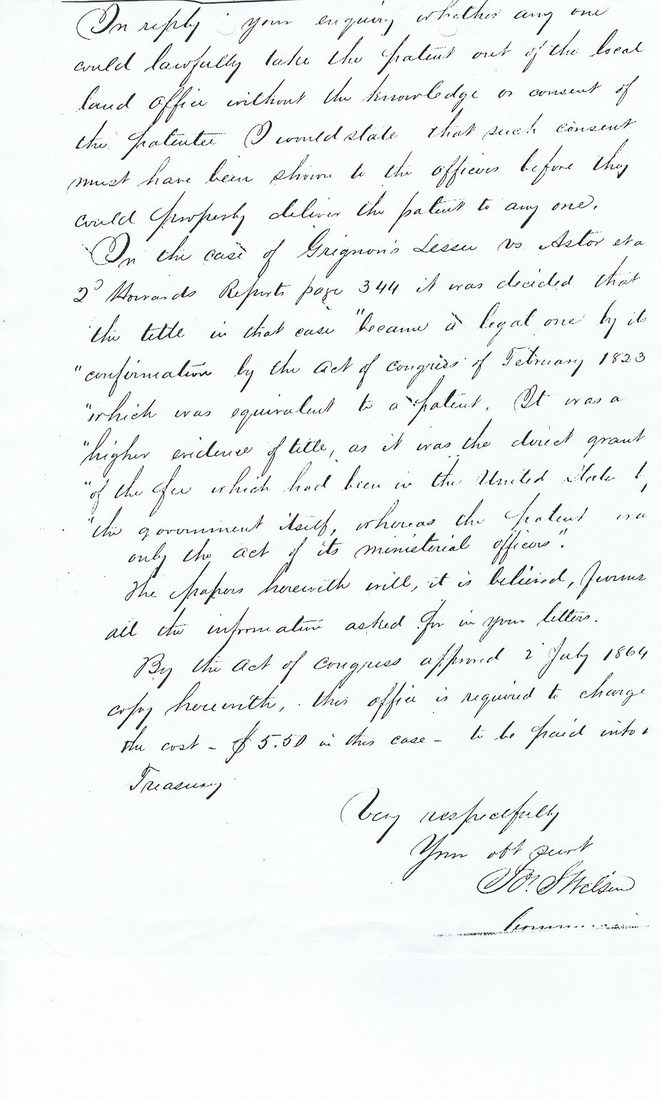 In reply your enquiry whether any one
could lawfully take the patent out of the local
land office without the knowledge or consent of
the patentee I would state that such consent
must have been shown to the officers before they
could properly deliver the patent to any one.
In the case of Grignon's Lessee vs Astor et a
2d Howards Reports page 344 it was decided that
the title in that case "became a legal one by its
"confirmation by the act of congress of February 1823
"which was equivalent to a patent. It was a
"higher evidence of title, as it was the direct grant
"of the fee which had been in the United States b
"the government itself, whereas the patent wa
only the act of its ministerial officers".
The papers herewith will, it is believed, furnis
all the information asked for in your letters.
By the act of congress approved 2 July 1864
copy herewith, this office is required to charge
the cost - $5.50 in this case - to be paid into
Treasury
Very respectfully
Your obt servt
Jos. S Wilson